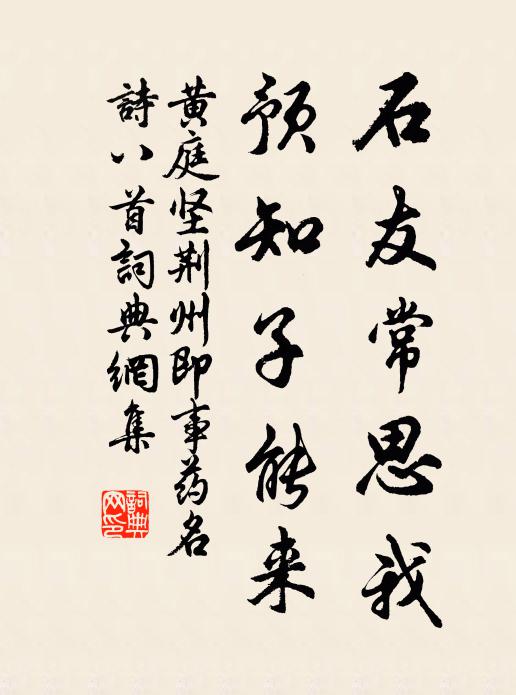 石友常思我
预知子能来
黄庭坚荆州即事药名
詩八首詞典網集
詞典網印